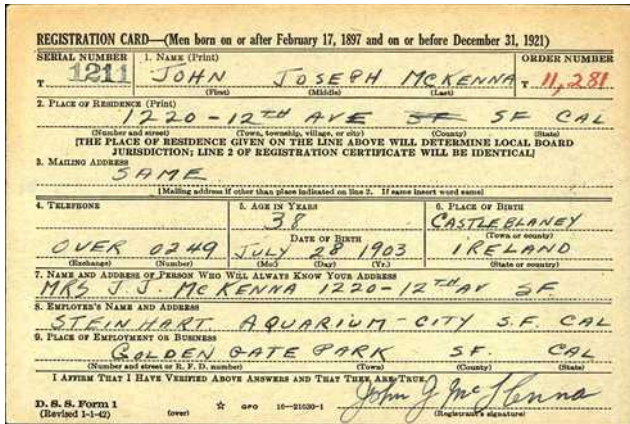 REGISTRATION CARD—(Men born on or after February 17, 1897 and on or before December 31, 1921)
SERIAL NUMBER 1. NAME (Print) ORDER NUMBER
T 1211 JOHN JOSEPH MCKENNA T 11,281
(First) (Middle) (Last)
2. PLACE OF RESIDENCE (Print)
1220-12TH AVE SF SF CAL
(Number and street) (Town, township, village, or city) (County) (State)
[THE PLACE OF RESIDENCE GIVEN ON THE LINE ABOVE WILL DETERMINE LOCAL BOARD
JURISDICTION; LINE 2 OF REGISTRATION CERTIFICATE WILL BE IDENTICAL]
3. MAILING ADDRESS
SAME
[Mailing address if other than place indicated on line 2. If same insert word same]
4. TELEPHONE 5. AGE IN YEARS 6. PLACE OF BIRTH
38 CASTLEBLANEY
DATE OF BIRTH (Town or county)
OVER 0249 JULY 28 1903 IRELAND
(Exchange) (Number) (Mo.) (Day) (Yr.) (State or country)
7. NAME AND ADDRESS OF PERSON WHO WILL ALWAYS KNOW YOUR ADDRESS
MRS J. J. MCKENNA 1220-12TH AV SF
8. EMPLOYER'S NAME AND ADDRESS
STEINHART AQUARIUM - CITY S.F. CAL
9. PLACE OF EMPLOYMENT OR BUSINESS
GOLDEN GATE PARK SF. CAL
(Number and street or R. F. D. number) (Town) (County) (State)
I AFFIRM THAT I HAVE VERIFIED ABOVE ANSWERS AND THAT THEY ARE TRUE.
John J McKenna
D. S. S. Form 1
(Revised 1-1-42) (over) GPO 16—21630-1 (Registrant's signature)